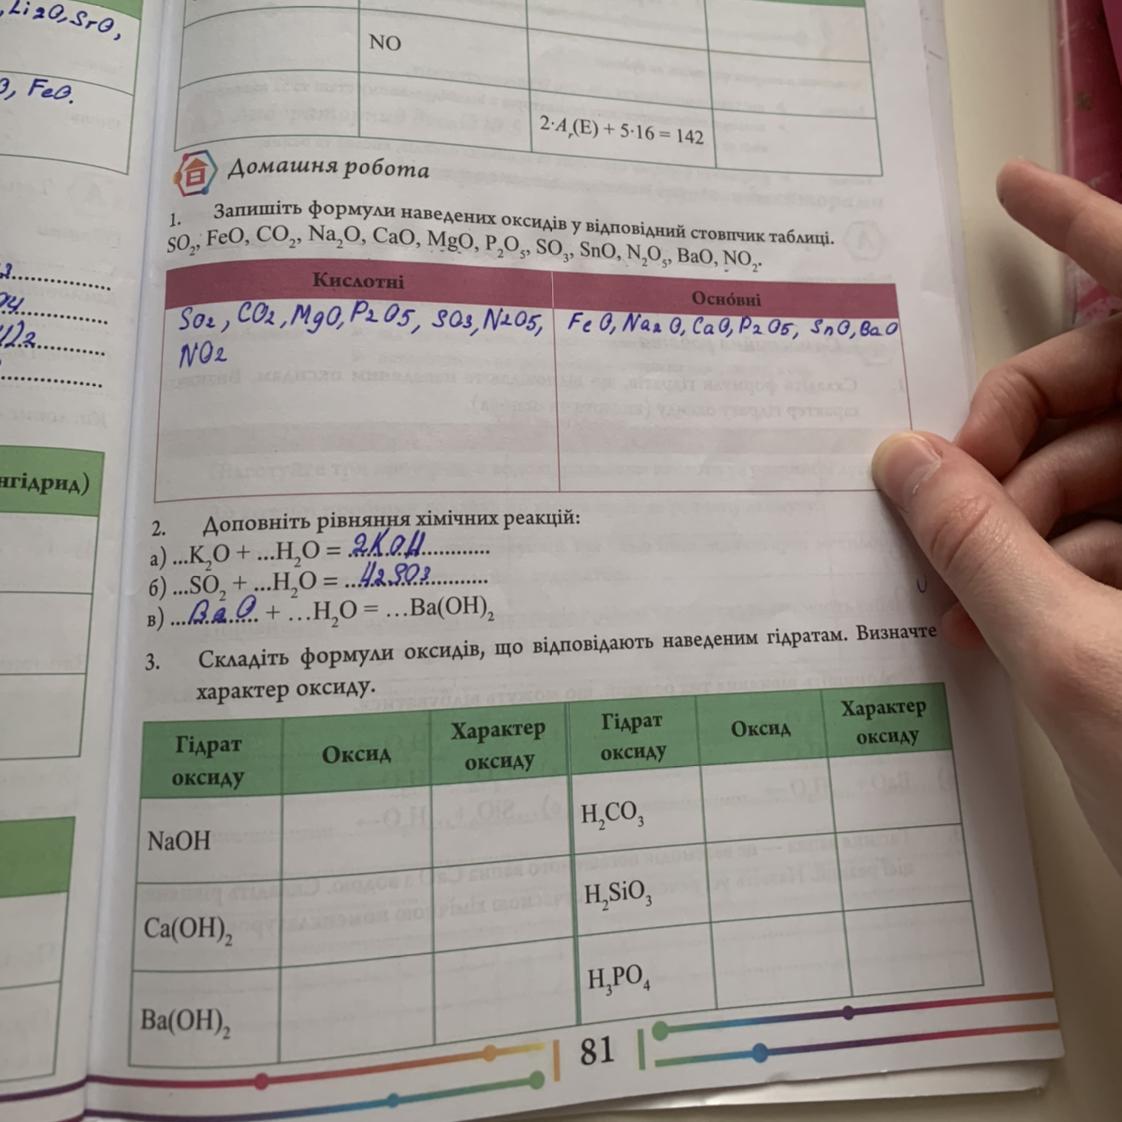 , Li2O, SrO,
NO
O, FeO.
2·Aᵣ(E) + 5·16 = 142
Домашня робота
1. Запишіть формули наведених оксидів у відповідний стовпчик таблиці.
SO₂, FeO, CO₂, Na₂O, CaO, MgO, P₂O₅, SO₃, SnO, N₂O₅, BaO, NO₂.
Кислотні Осно́вні
SO2, CO2, MgO, P2O5, SO3, N2O5, FeO, Na2O, CaO, P2O5, SnO, BaO
NO2
нгідрид)
2. Доповніть рівняння хімічних реакцій:
а) ...K₂O + ...H₂O = ...2KOH............
б) ...SO₂ + ...H₂O = ...H2SO3............
в) ...BaO...... + ...H₂O = ...Ba(OH)₂
3. Складіть формули оксидів, що відповідають наведеним гідратам. Визначте
характер оксиду.
Гідрат оксиду Оксид Характер оксиду Гідрат оксиду Оксид Характер оксиду
NaOH H₂CO₃
Ca(OH)₂ H₂SiO₃
Ba(OH)₂ H₃PO₄
81